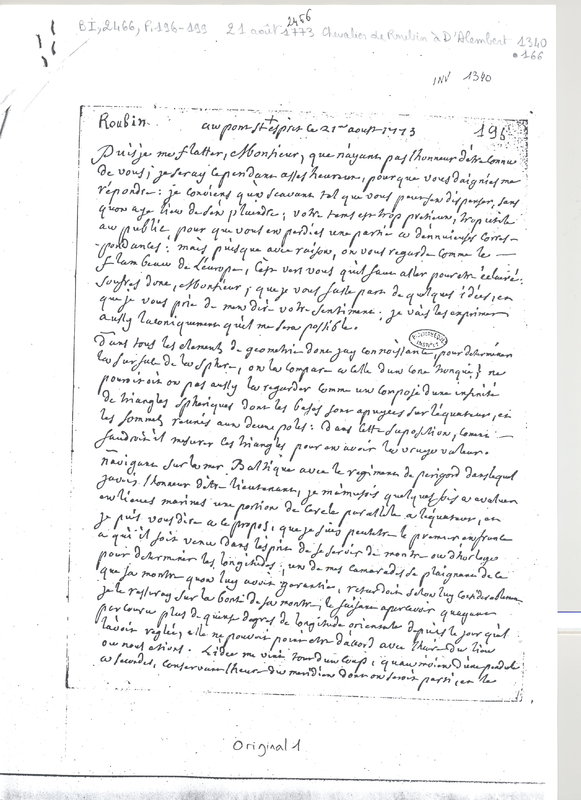 BI, 2466, P. 196-199 21 août 1773 Chevalier de Roubin à D'Alembert 1340
2466
166
INV 1340
Roubin
au pont St esprit le 21me aoust 1773
195
Puisje me flatter, Monsieur, que n'ayant pas l'honneur d'être connu
de vous; je seray cependant assés heureux, pour que vous daigniés me
répondre: je conviens qu'un scavant tel que vous peut s'en dispenser, sans
qu'on aye lieu de s'en plaindre; votre tems est trop pretieux, trop utile
au public, pour que vous en perdiés une partie a d'ennuieuses corres-
pondances: mais puisque avec raison, on vous regarde comme le
flambeau de l'europe, c'est vers vous qu'il faut aller pour etre éclairé.
soufrés donc, Monsieur, que je vous fasse part de quelques idées, et
que je vous prie de m'en dire votre sentiment. je vais les exprimer
aussy laconiquement qu'il me sera possible.
Dans tous les elements de geometrie dont j'ay connoissance, pour determiner
la surface de la sphere, on la compare a celle d'un cone tronqué; ne
pourroit on pas aussy la regarder comme un composé d'une infinité
de triangles spheriques dont les bases sont apuyées sur l'équateur, et
les sommets reunis aux deux poles: Dans cette suposition, comment
faudroit il mesurer ces triangles pour en avoir la vraye valeur.
Navigant sur la mer Baltique avec le regiment de perigord dans lequel
j'avois l'honneur d'être lieutenant, je m'amusois quelques fois a evaluer
en lieues marines une portion de cercle parallele a l'équateur, et
je puis vous dire a ce propos, que je suis peut etre le premier en france
a qui il soit venu dans l'esprit de se servir de montre ou d'horloge
pour determiner les longitudes: un de mes camarades se plaignant de ce
que sa montre qu'on luy avoit garantie, retardoit selon luy considerablement
je le rassuray sur la bonté de sa montre, le faisant apercevoir qu'ayant
parcouru plus de quinze degres de longitude orientale depuis le jour qu'il
l'avoit reglée, elle ne pouvoit point etre d'acord avec l'heure du lieu
ou nous etions. L'idée me vint tout d'un coup, qu'au moien d'une pendule
a secondes, conservant l'heure du meridien dont on seroit parti, et le
Original 1